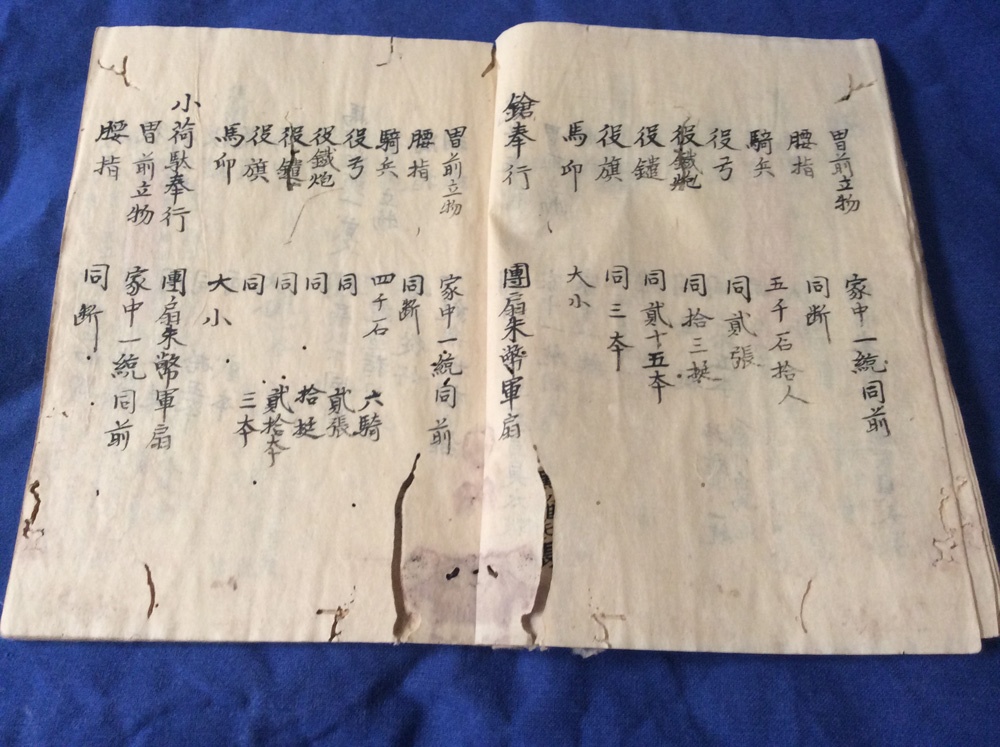 冑前立物 家中一統同前
腰指 同断
騎兵 五千石拾人
役弓 同貳張
役鐵炮 同拾三挺
役鑓 同貳十五本
役旗 同三本
馬印 大小
鎗奉行 團扇朱幣軍扇
冑前立物 家中一統同前
腰指 同断
騎兵 四千石六騎
役弓 同貳張
役鐵炮 同拾挺
役鑓 同貳拾本
役旗 同三本
馬印 大小
小荷駄奉行 團扇朱幣軍扇
冑前立物 家中一統同前
腰指 同断